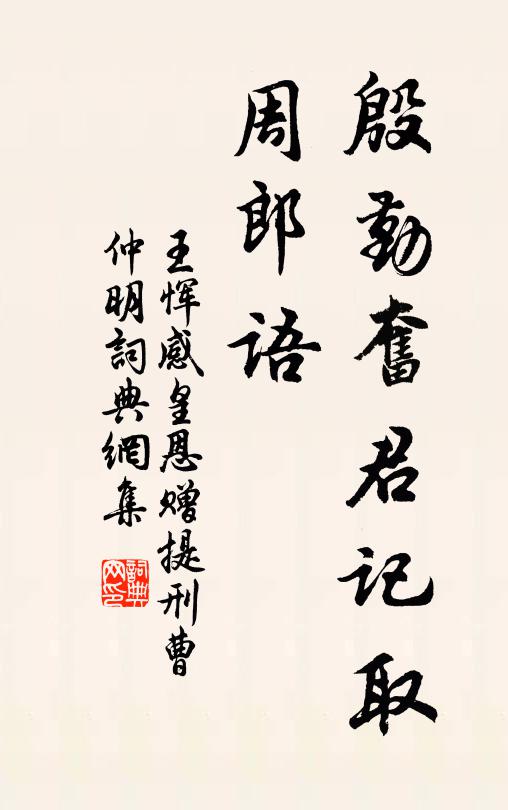 殷勤奮君記取
周郎語
王惲感皇恩贈提刑曹
仲明詞典網集
詞典网印